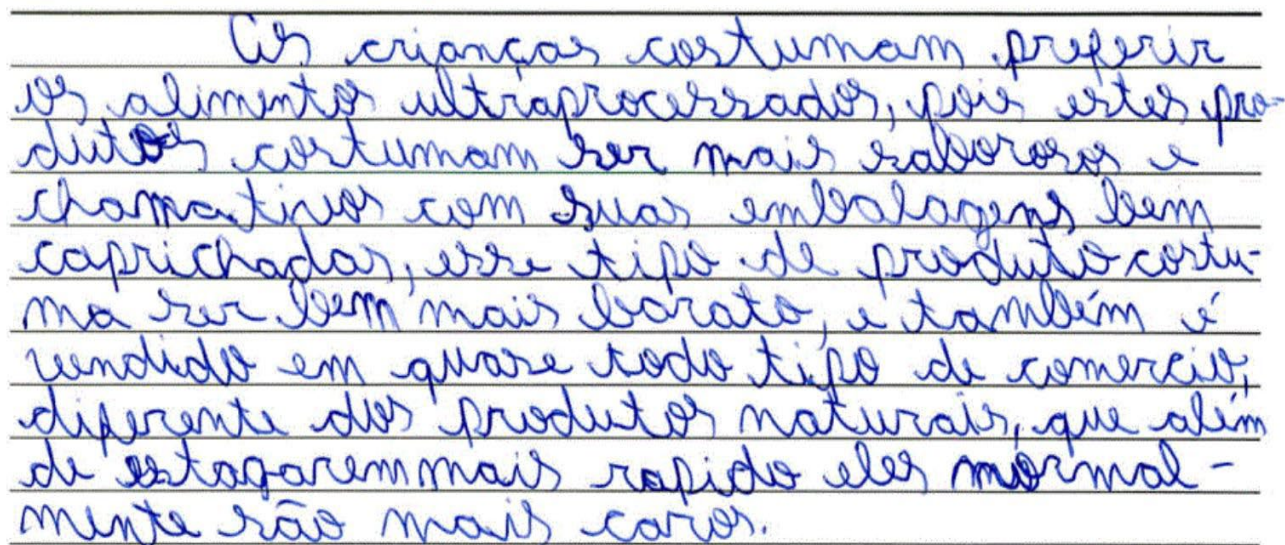 As crianças costumam preferir
os alimentos ultraprocessados, pois estes pro-
dutos costumam ser mais saborosos e
chamativos com suas embalagens bem
caprichadas, esse tipo de produto costu-
ma ser bem mais barato, e também é
vendido em quase todo tipo de comercio,
diferente dos produtos naturais, que além
de estagarem mais rapido eles normal-
mente são mais caros.